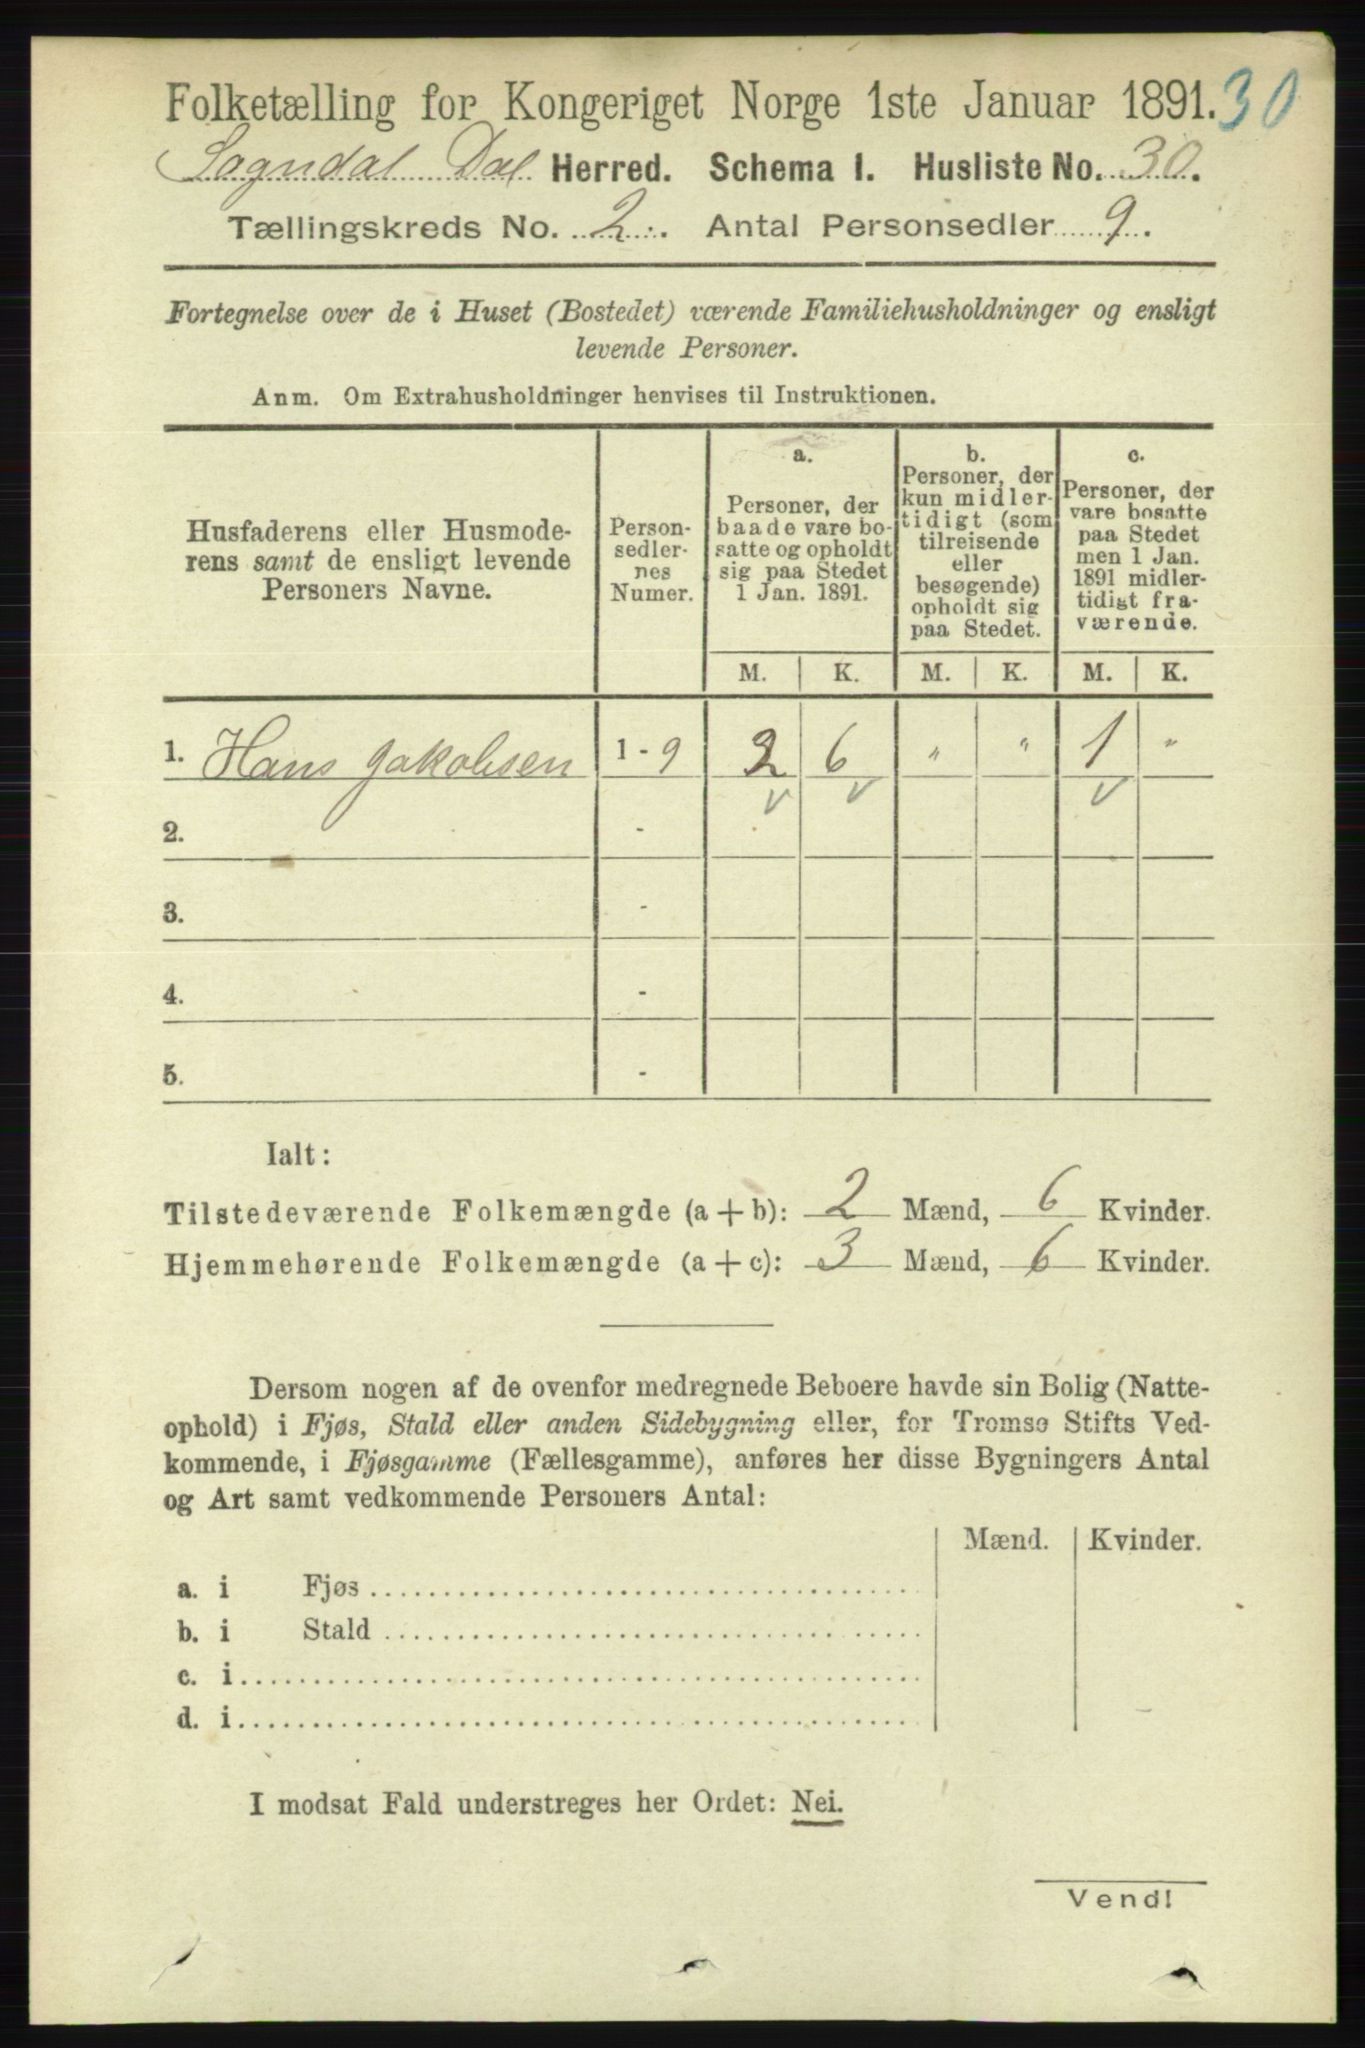 Folketælling for Kongeriget Norge 1ste Januar 1891. 30
Sogndal Dal Herred. Schema I. Husliste No. 30.
Tællingskreds No. 2. Antal Personsedler 9.
Fortegnelse over de i Huset (Bostedet) værende Familiehusholdninger og ensligt
levende Personer.
Anm. Om Extrahusholdninger henvises til Instruktionen.
Husfaderens eller Husmode-
rens samt de ensligt levende
Personers Navne.
Person-
sedler-
nes
Numer.
a.
Personer, der
baade vare bo-
satte og opholdt
sig paa Stedet
1 Jan. 1891.
b.
Personer, der
kun midler-
tidigt (som
tilreisende
eller
besøgende)
opholdt sig
paa Stedet.
c.
Personer, der
vare bosatte
paa Stedet
men 1 Jan.
1891 midler-
tidigt fra-
værende.
M. K. M. K. M. K.
1. Hans Jakobsen 1 - 9 2 6 " " 1 "
2. -
3. -
4. -
5. -
Ialt:
Tilstedeværende Folkemængde (a + b): 2 Mænd, 6 Kvinder.
Hjemmehørende Folkemængde (a + c): 3 Mænd, 6 Kvinder.
Dersom nogen af de ovenfor medregnede Beboere havde sin Bolig (Natte-
ophold) i Fjøs, Stald eller anden Sidebygning eller, for Tromsø Stifts Ved-
kommende, i Fjøsgamme (Fællesgamme), anføres her disse Bygningers Antal
og Art samt vedkommende Personers Antal:
Mænd. Kvinder.
a. i Fjøs
b. i Stald
c. i
d. i
I modsat Fald understreges her Ordet: Nei.
Vend!